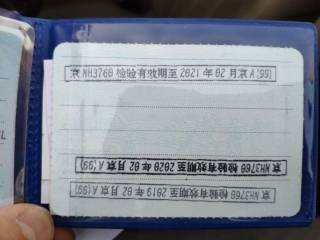 京NH3760 检验有效期至2021年02月京A(99)
京NH3760 检验有效期至2020年02月京A(99)
京NH3760 检验有效期至2019年02月京A(99)